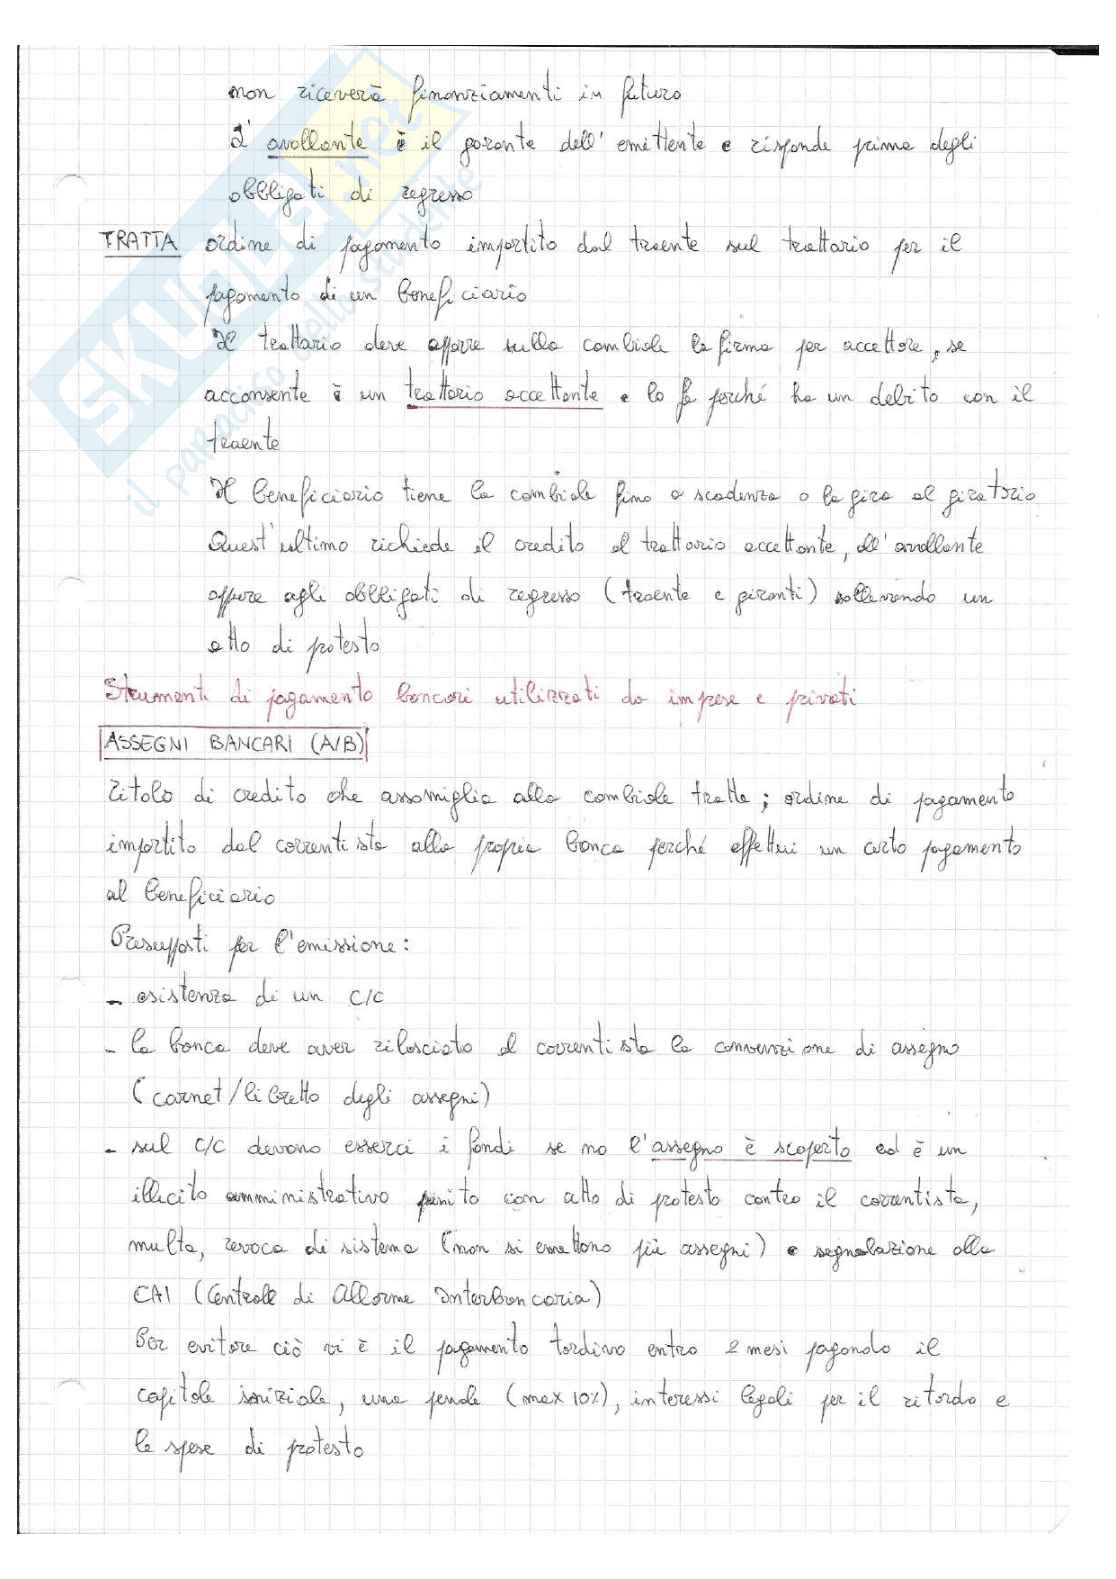 non riceverà finanziamenti in futuro
L'avallante è il garante dell'emittente e risponde prima degli
obbligati di regresso
TRATTA ordine di pagamento impartito dal traente sul trattario per il
pagamento di un beneficiario
Il trattario deve apporre sulla cambiale la firma per accettare, se
acconsente è un trattario accettante e lo fa perché ha un debito con il
traente
Il beneficiario tiene la cambiale fino a scadenza o la gira al giratario
Quest'ultimo richiede il credito al trattario accettante, all'avallante
oppure agli obbligati di regresso (traente e giranti) sollevando un
atto di protesto
Strumenti di pagamento bancari utilizzati da imprese e privati
ASSEGNI BANCARI (A/B)
titolo di credito che assomiglia alla cambiale tratta; ordine di pagamento
impartito dal correntista alla propria banca perché effettui un certo pagamento
al beneficiario
Presupposti per l'emissione:
- esistenza di un C/C
- la banca deve aver rilasciato al correntista la convenzione di assegno
(carnet/libretto degli assegni)
- sul C/C devono esserci i fondi se no l'assegno è scoperto ed è un
illecito amministrativo punito con atto di protesto contro il correntista,
multa, revoca di sistema (non si emettono più assegni) e segnalazione alla
CAI (Centrale di Allarme Interbancaria)
Per evitare ciò vi è il pagamento tardivo entro 2 mesi pagando il
capitale iniziale, una penale (max 10%), interessi legali per il ritardo e
le spese di protesto
SKUOLA.net
il paradiso dello studente